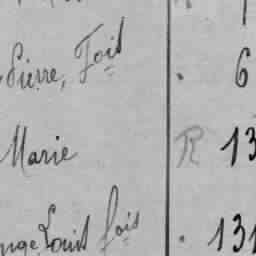 Pierre, Fois · 6
Marie R 13
ange Louis fois · 131